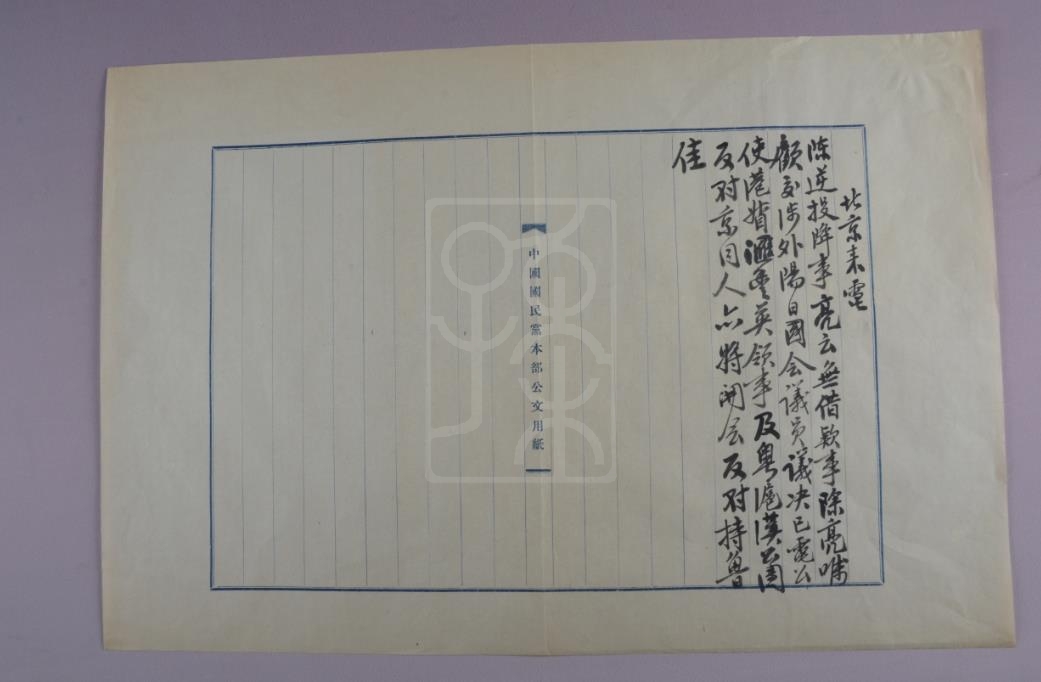 北京来電
陈逆投降事亮云無借欵事除亮嘱
顧交涉外陽日國会議員議决已電公
使港督滙豊英領事及粤滬漢公團
反对京同人亦将開会反对持魯
佳
中國國民黨本部公文用紙